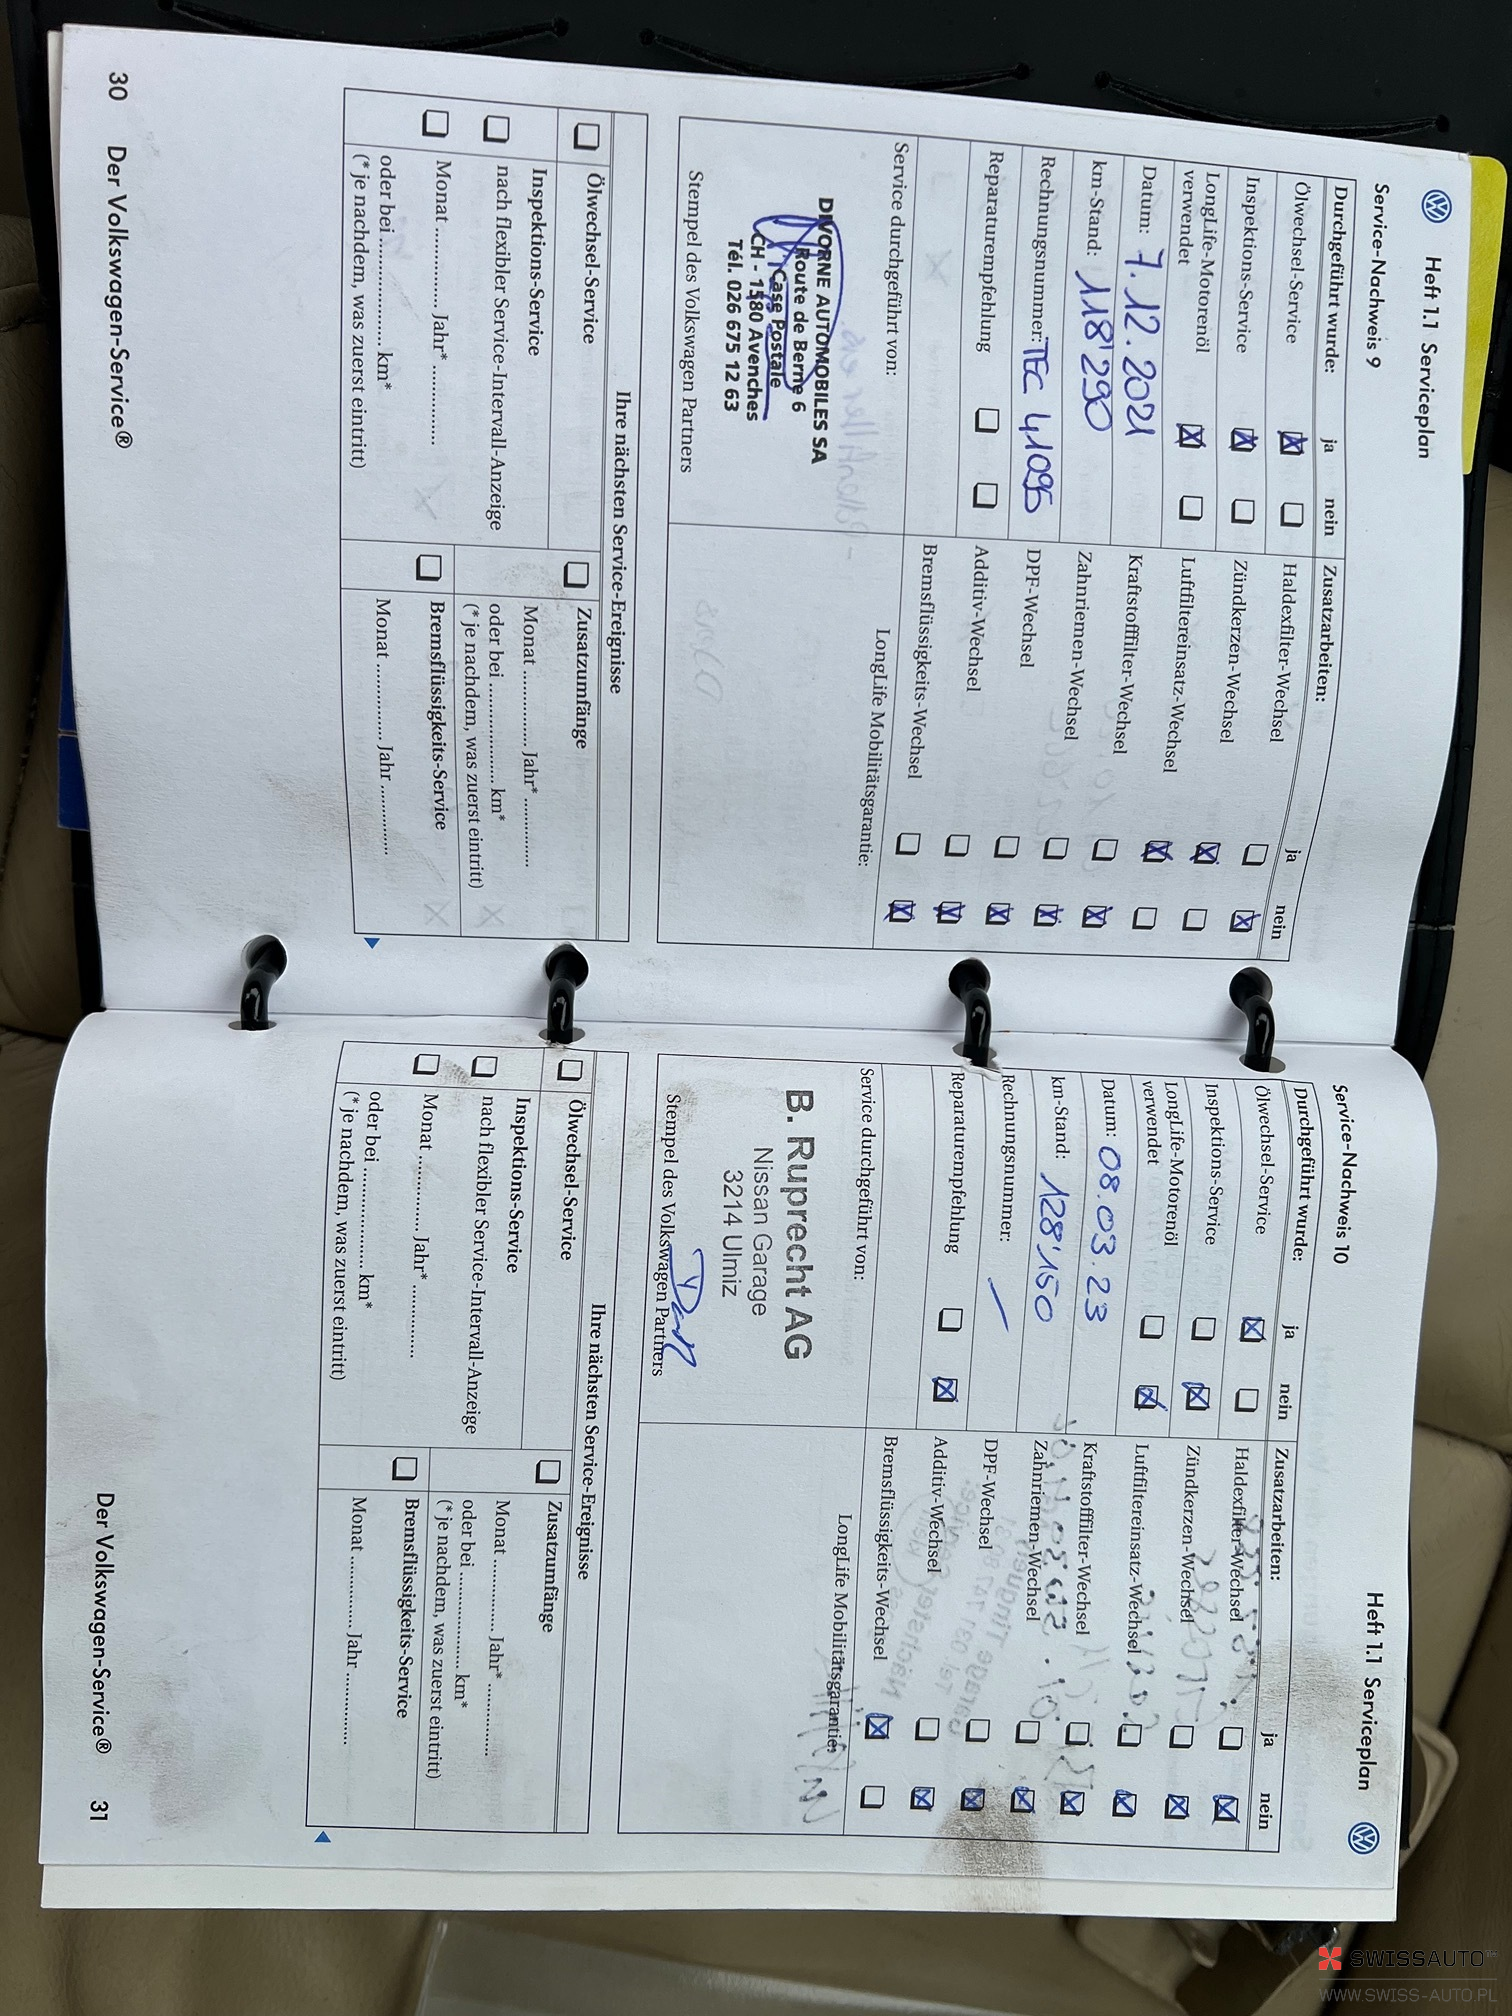 Heft 1.1 Serviceplan
Service-Nachweis 9
Durchgeführt wurde: ja nein
Ölwechsel-Service
Inspektions-Service
LongLife-Motorenöl
verwendet
Datum: 7.12.2021
km-Stand: 118'290
Rechnungsnummer: TEC 41095
Reparaturempfehlung
Service durchgeführt von:
DIVORNE AUTOMOBILES SA
Route de Berne 6
Case Postale
CH - 1580 Avenches
Tél. 026 675 12 63
Stempel des Volkswagen Partners
Zusatzarbeiten: ja nein
Haldexfilter-Wechsel
Zündkerzen-Wechsel
Luftfiltereinsatz-Wechsel
Kraftstofffilter-Wechsel
Zahnriemen-Wechsel
DPF-Wechsel
Additiv-Wechsel
Bremsflüssigkeits-Wechsel
LongLife Mobilitätsgarantie:
Ihre nächsten Service-Ereignisse
Ölwechsel-Service
Inspektions-Service
nach flexibler Service-Intervall-Anzeige
Monat ................ Jahr* ................
oder bei ...................... km*
(* je nachdem, was zuerst eintritt)
Zusatzumfänge
Monat ................ Jahr* ................
oder bei ...................... km*
(* je nachdem, was zuerst eintritt)
Bremsflüssigkeits-Service
Monat ................ Jahr ................
30 Der Volkswagen-Service®
Heft 1.1 Serviceplan
Service-Nachweis 10
Durchgeführt wurde: ja nein
Ölwechsel-Service
Inspektions-Service
LongLife-Motorenöl
verwendet
Datum: 08.03.23
km-Stand: 128'150
Rechnungsnummer: /
Reparaturempfehlung
Service durchgeführt von:
B. Ruprecht AG
Nissan Garage
3214 Ulmiz
Stempel des Volkswagen Partners
Zusatzarbeiten: ja nein
Haldexfilter-Wechsel
Zündkerzen-Wechsel
Luftfiltereinsatz-Wechsel
Kraftstofffilter-Wechsel
Zahnriemen-Wechsel
DPF-Wechsel
Additiv-Wechsel
Bremsflüssigkeits-Wechsel
LongLife Mobilitätsgarantie:
Ihre nächsten Service-Ereignisse
Ölwechsel-Service
Inspektions-Service
nach flexibler Service-Intervall-Anzeige
Monat ................ Jahr* ................
oder bei ...................... km*
(* je nachdem, was zuerst eintritt)
Zusatzumfänge
Monat ................ Jahr* ................
oder bei ...................... km*
(* je nachdem, was zuerst eintritt)
Bremsflüssigkeits-Service
Monat ................ Jahr ................
Der Volkswagen-Service® 31
SWISSAUTO
WWW.SWISS-AUTO.PL